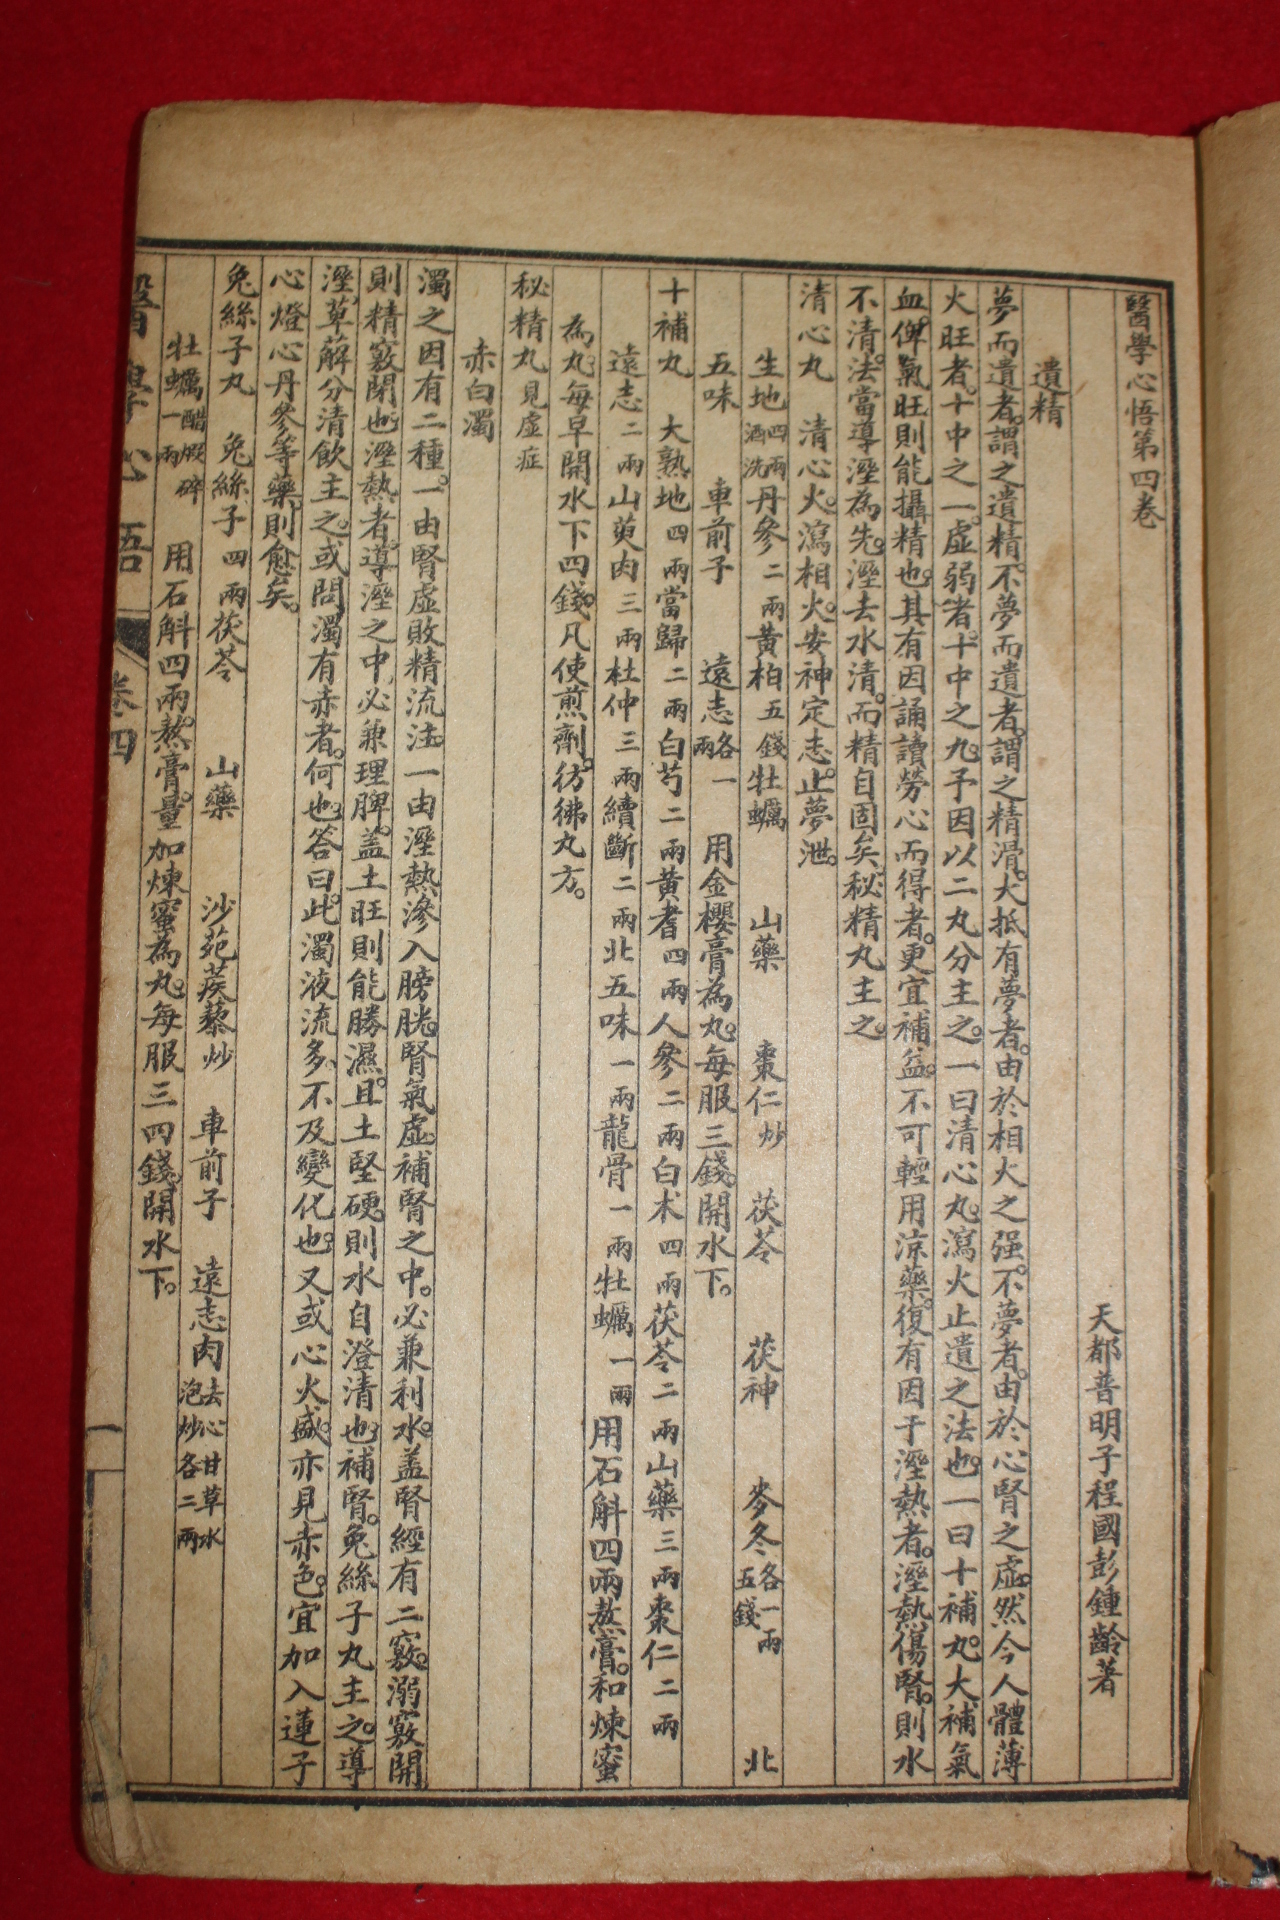 醫學心悟第四卷
天都普明子程國彭鍾齡著
遺精
夢而遺者。謂之遺精。不夢而遺者。謂之精滑。大抵有夢者。由於相火之强。不夢者。由於心腎之虛。然今人體薄
火旺者。十中之一。虛弱者。十中之九。予因以二丸分主之。一曰清心丸。瀉火止遺之法也。一曰十補丸。大補氣
血。俾氣旺則能攝精也。其有因誦讀勞心而得者。更宜補益。不可輕用凉藥。復有因于溼熱者。溼熱傷腎。則水
不清。法當導溼為先。溼去水清。而精自固矣。秘精丸主之。
清心丸　清心火。瀉相火。安神定志。止夢泄。
生地四兩酒洗丹參二兩黃柏五錢牡蠣　山藥　棗仁炒　茯苓　茯神　麥冬各一兩五錢　北
五味　車前子　遠志各一兩　用金櫻膏為丸。每服三錢。開水下。
十補丸　大熟地四兩當歸二兩白芍二兩黃耆四兩人參二兩白朮四兩茯苓二兩山藥三兩棗仁二兩
遠志二兩山萸肉三兩杜仲三兩續斷二兩北五味一兩龍骨一兩牡蠣一兩用石斛四兩熬膏。和煉蜜
為丸。每早開水下四錢。凡使煎劑。彷彿丸方。
秘精丸見虛症
赤白濁
濁之因有二種。一由腎虛敗精流注。一由溼熱滲入膀胱。腎氣虛。補腎之中。必兼利水。蓋腎經有二竅。溺竅開
則精竅閉也。溼熱者。導溼之中。必兼理脾。蓋土旺則能勝濕。且土堅硬。則水自澄清也。補腎。兔絲子丸主之。導
溼。萆薢分清飲主之。或問。濁有赤者。何也。答曰。此濁液流多。不及變化也。又或心火盛。亦見赤色。宜加入蓮子
心燈心丹參等藥。則愈矣。
兔絲子丸　兔絲子四兩茯苓　山藥　沙苑蒺藜炒　車前子　遠志肉去心甘草水泡炒各二兩
牡蠣醋煅碎一兩　用石斛四兩。熬膏。量加煉蜜為丸。每服三四錢。開水下。
醫學心悟
卷四
一